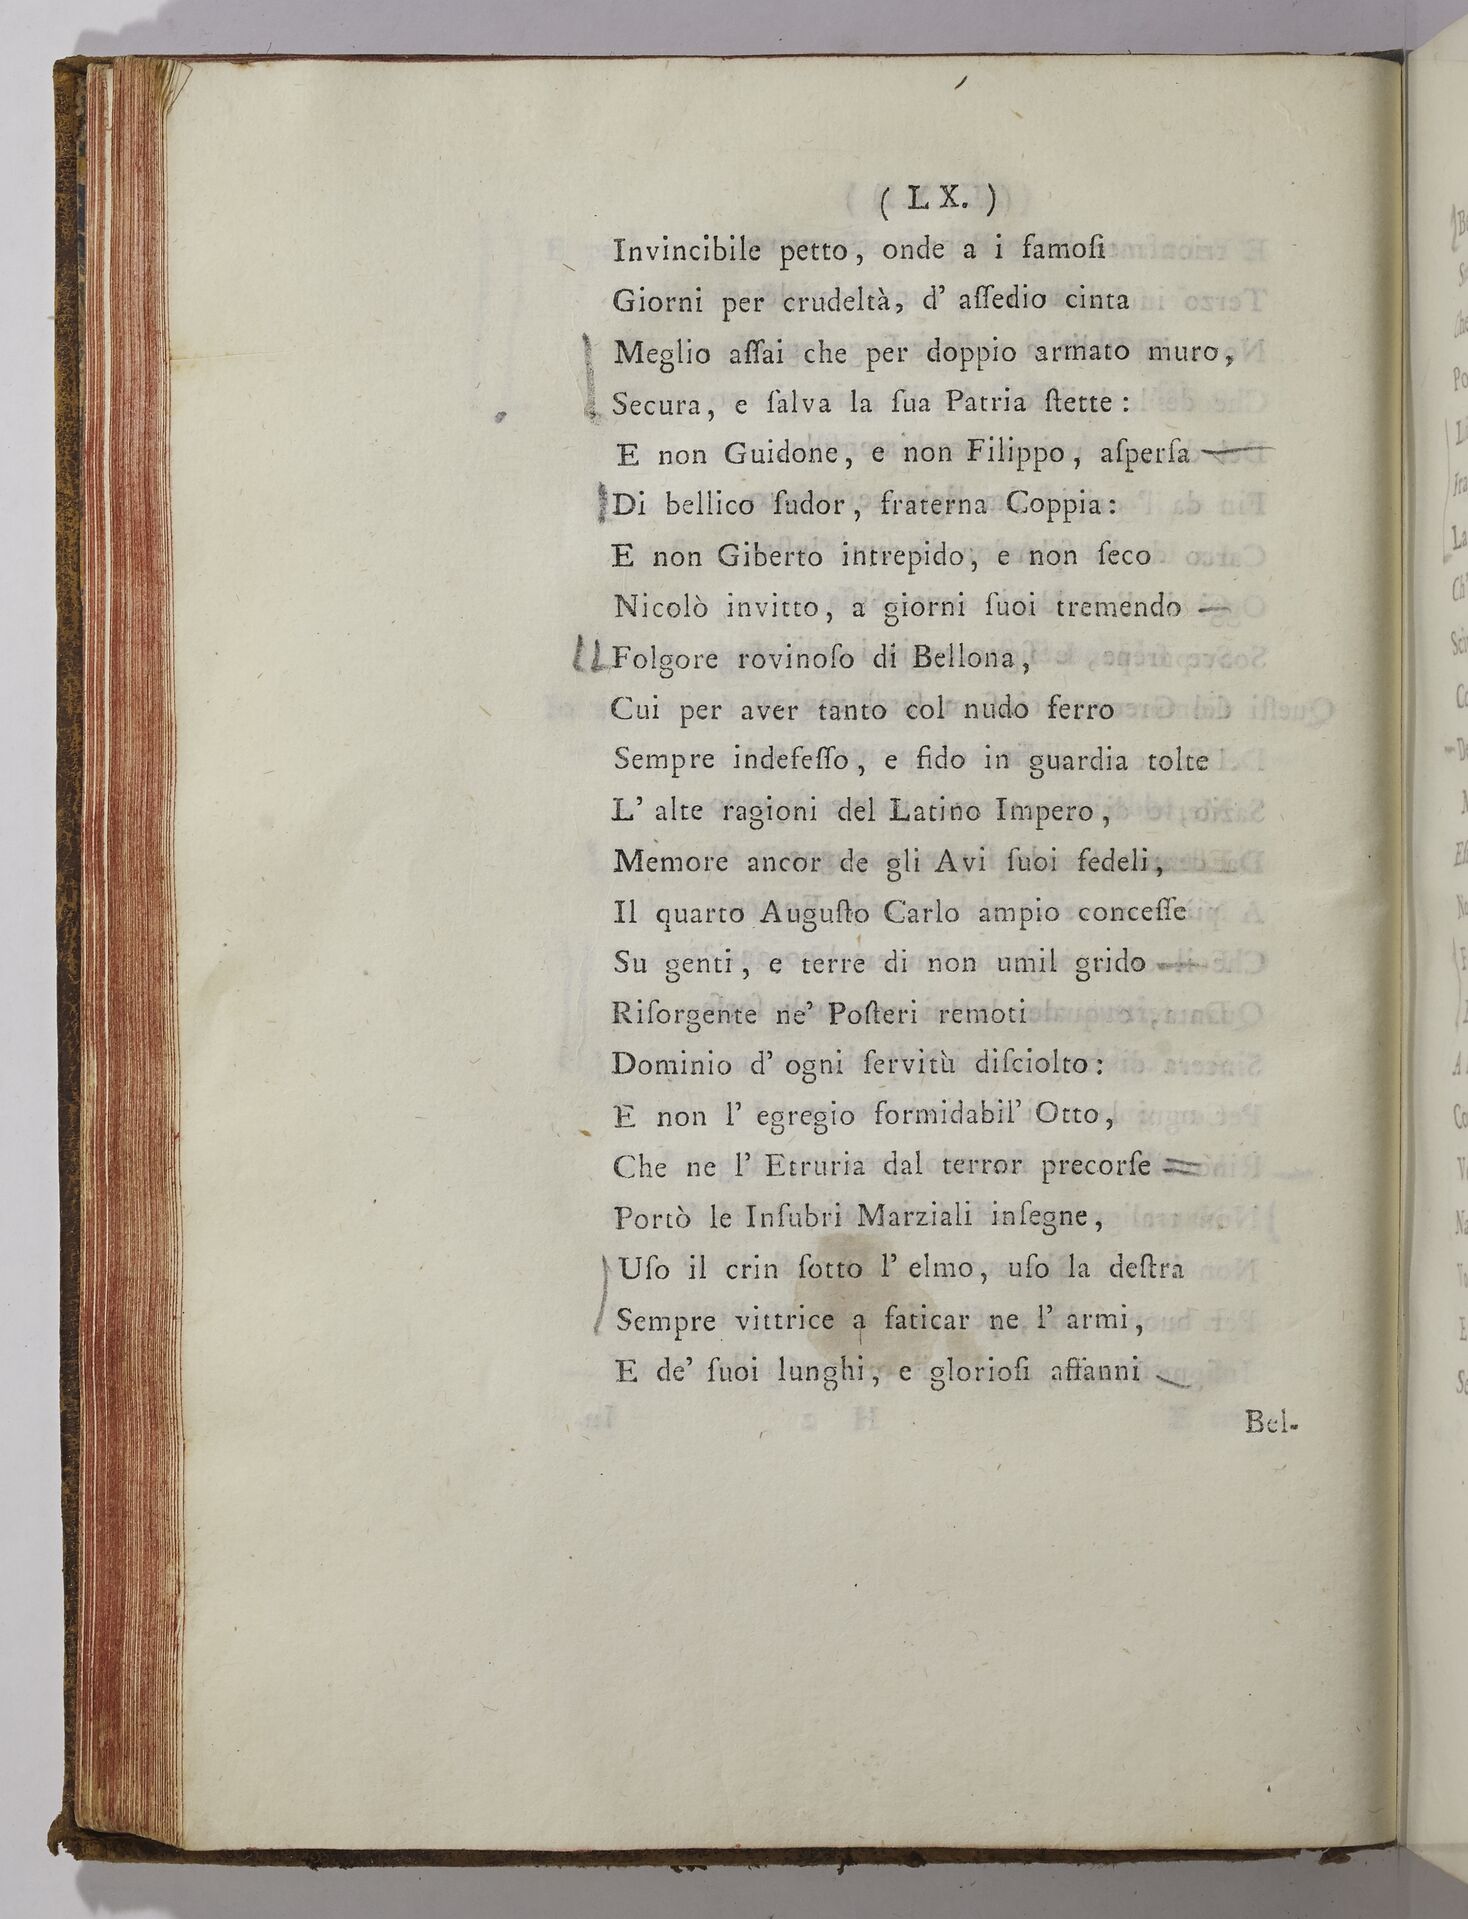 ( LX. )
Invincibile petto, onde a i famoſi
Giorni per crudeltà, d' aſſedio cinta
Meglio aſſai che per doppio armato muro,
Secura, e ſalva la ſua Patria ſtette:
E non Guidone, e non Filippo, aſperſa
Di bellico ſudor, fraterna Coppia:
E non Giberto intrepido, e non ſeco
Nicolò invitto, a giorni ſuoi tremendo
Folgore rovinoſo di Bellona,
Cui per aver tanto col nudo ferro
Sempre indefeſſo, e fido in guardia tolte
L' alte ragioni del Latino Impero,
Memore ancor de gli Avi ſuoi fedeli,
Il quarto Auguſto Carlo ampio conceſſe
Su genti, e terre di non umil grido
Riſorgente ne' Poſteri remoti
Dominio d' ogni ſervitù diſciolto:
E non l' egregio formidabil' Otto,
Che ne l' Etruria dal terror precorſe
Portò le Inſubri Marziali inſegne,
Uſo il crin ſotto l' elmo, uſo la deſtra
Sempre vittrice a faticar ne l' armi,
E de' ſuoi lunghi, e glorioſi affanni
Bel-